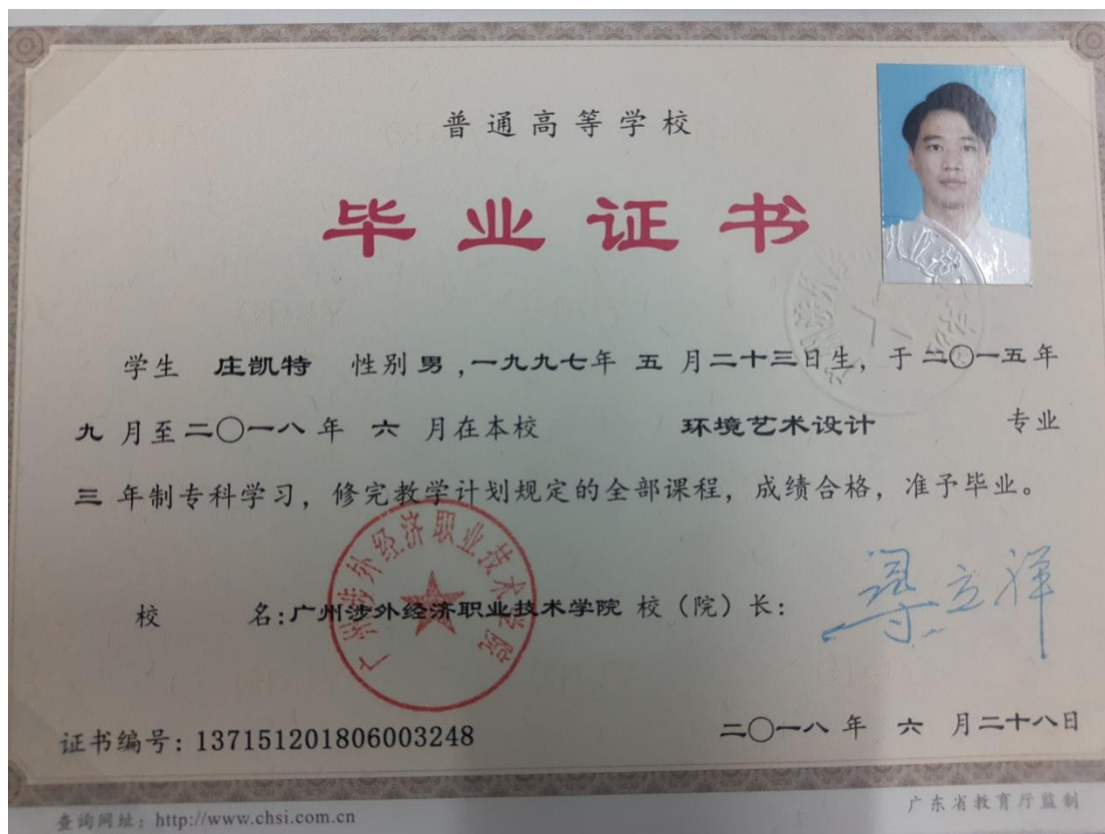 普通高等学校
毕业证书
学生 庄凯特 性别 男 ,一九九七年 五 月二十三日生, 于 二〇一五年
九 月至二〇一八 年 六 月在本校 环境艺术设计 专业
三 年制专科学习, 修完教学计划规定的全部课程, 成绩合格, 准予毕业。
广州涉外经济职业技术学院
校 名:广州涉外经济职业技术学院 校（院）长: 梁立祥
证书编号: 137151201806003248 二〇一八 年 六 月二十八日
查询网址: http://www.chsi.com.cn 广东省教育厅监制